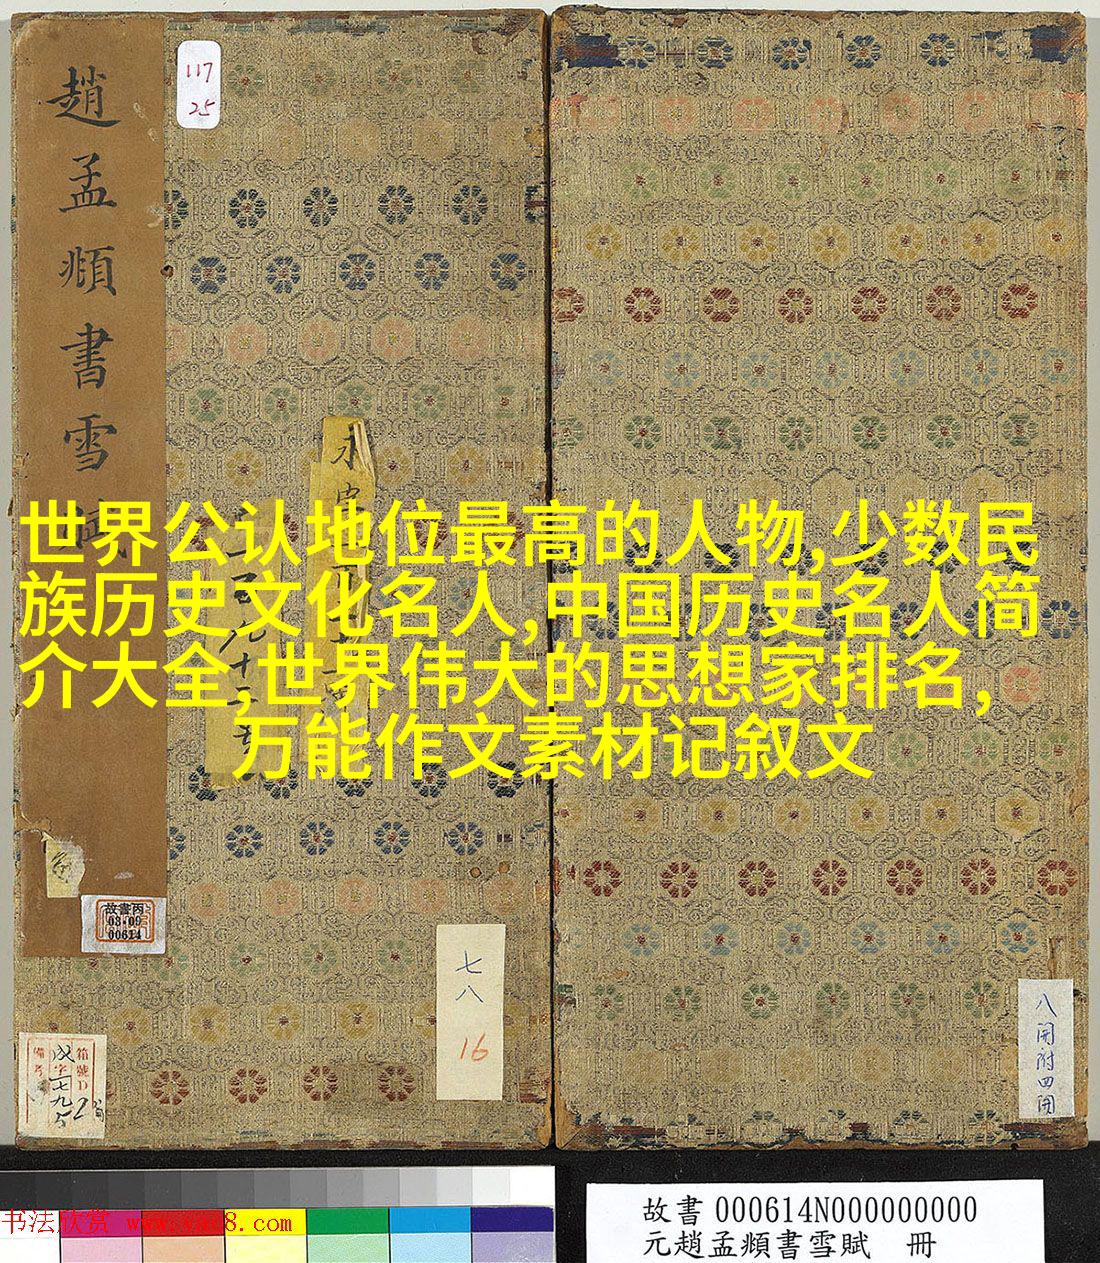 趙孟頫書雪賦
117
25
世界公认地位最高的人物,少数民
族历史文化名人,中国历史名人简
介大全,世界伟大的思想家排名,
万能作文素材记叙文
故書丙
03·09
00614
七八
16
八開附四開
箱號D
備考
书法欣赏 www.yac8.com
故書 000614N000000000
元趙孟頫書雪賦 冊